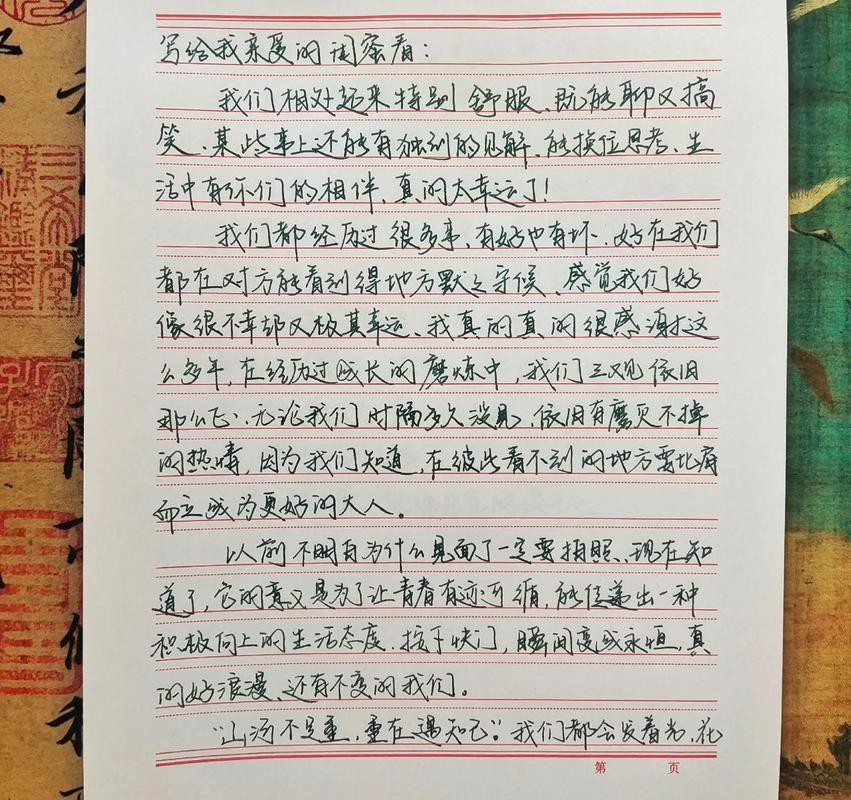 写给我亲爱的闺蜜看:
我们相处起来特别舒服、既能聊又搞
笑、某些事上还能有独到的见解、能换位思考、生
活中有你们的相伴、真的太幸运了!
我们都经历过很多事、有好也有坏、好在我们
都在对方能看到得地方默々守候、感觉我们好
像很不幸却又极其幸运、我真的真的很感谢这
么多年,在经历过成长的磨炼中,我们三观依旧
那么正、无论我们时隔多久没见、依旧有磨灭不掉
的热情,因为我们知道,在彼此看不到的地方要比肩
而立成为更好的大人。
以前不明白为什么见面了一定要拍照、现在知
道了,它的意义是为了让青春有迹可循,能传递出一种
积极向上的生活态度、按下快门,瞬间变成永恒、真
的好浪漫、还有不变的我们。
“山河不足重,重在遇知己”。我们都会发着光、花
第 页